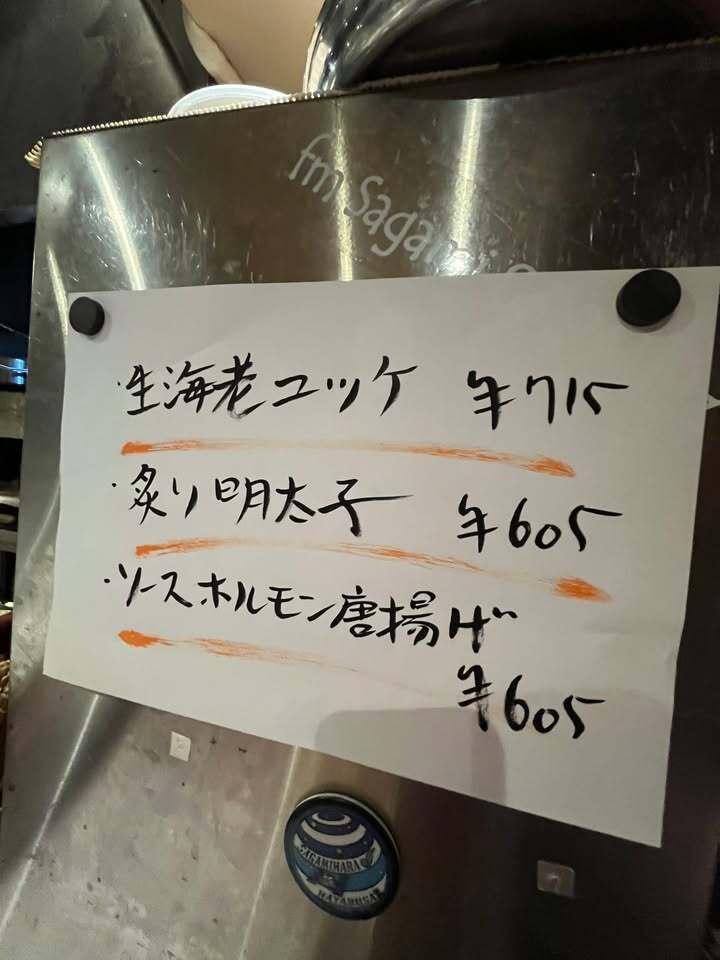 fm Sagami
・生海老ユッケ ¥715
・炙り明太子 ¥605
・ソースホルモン唐揚げ
¥605
SAGAMIHARA
HAYABUSA